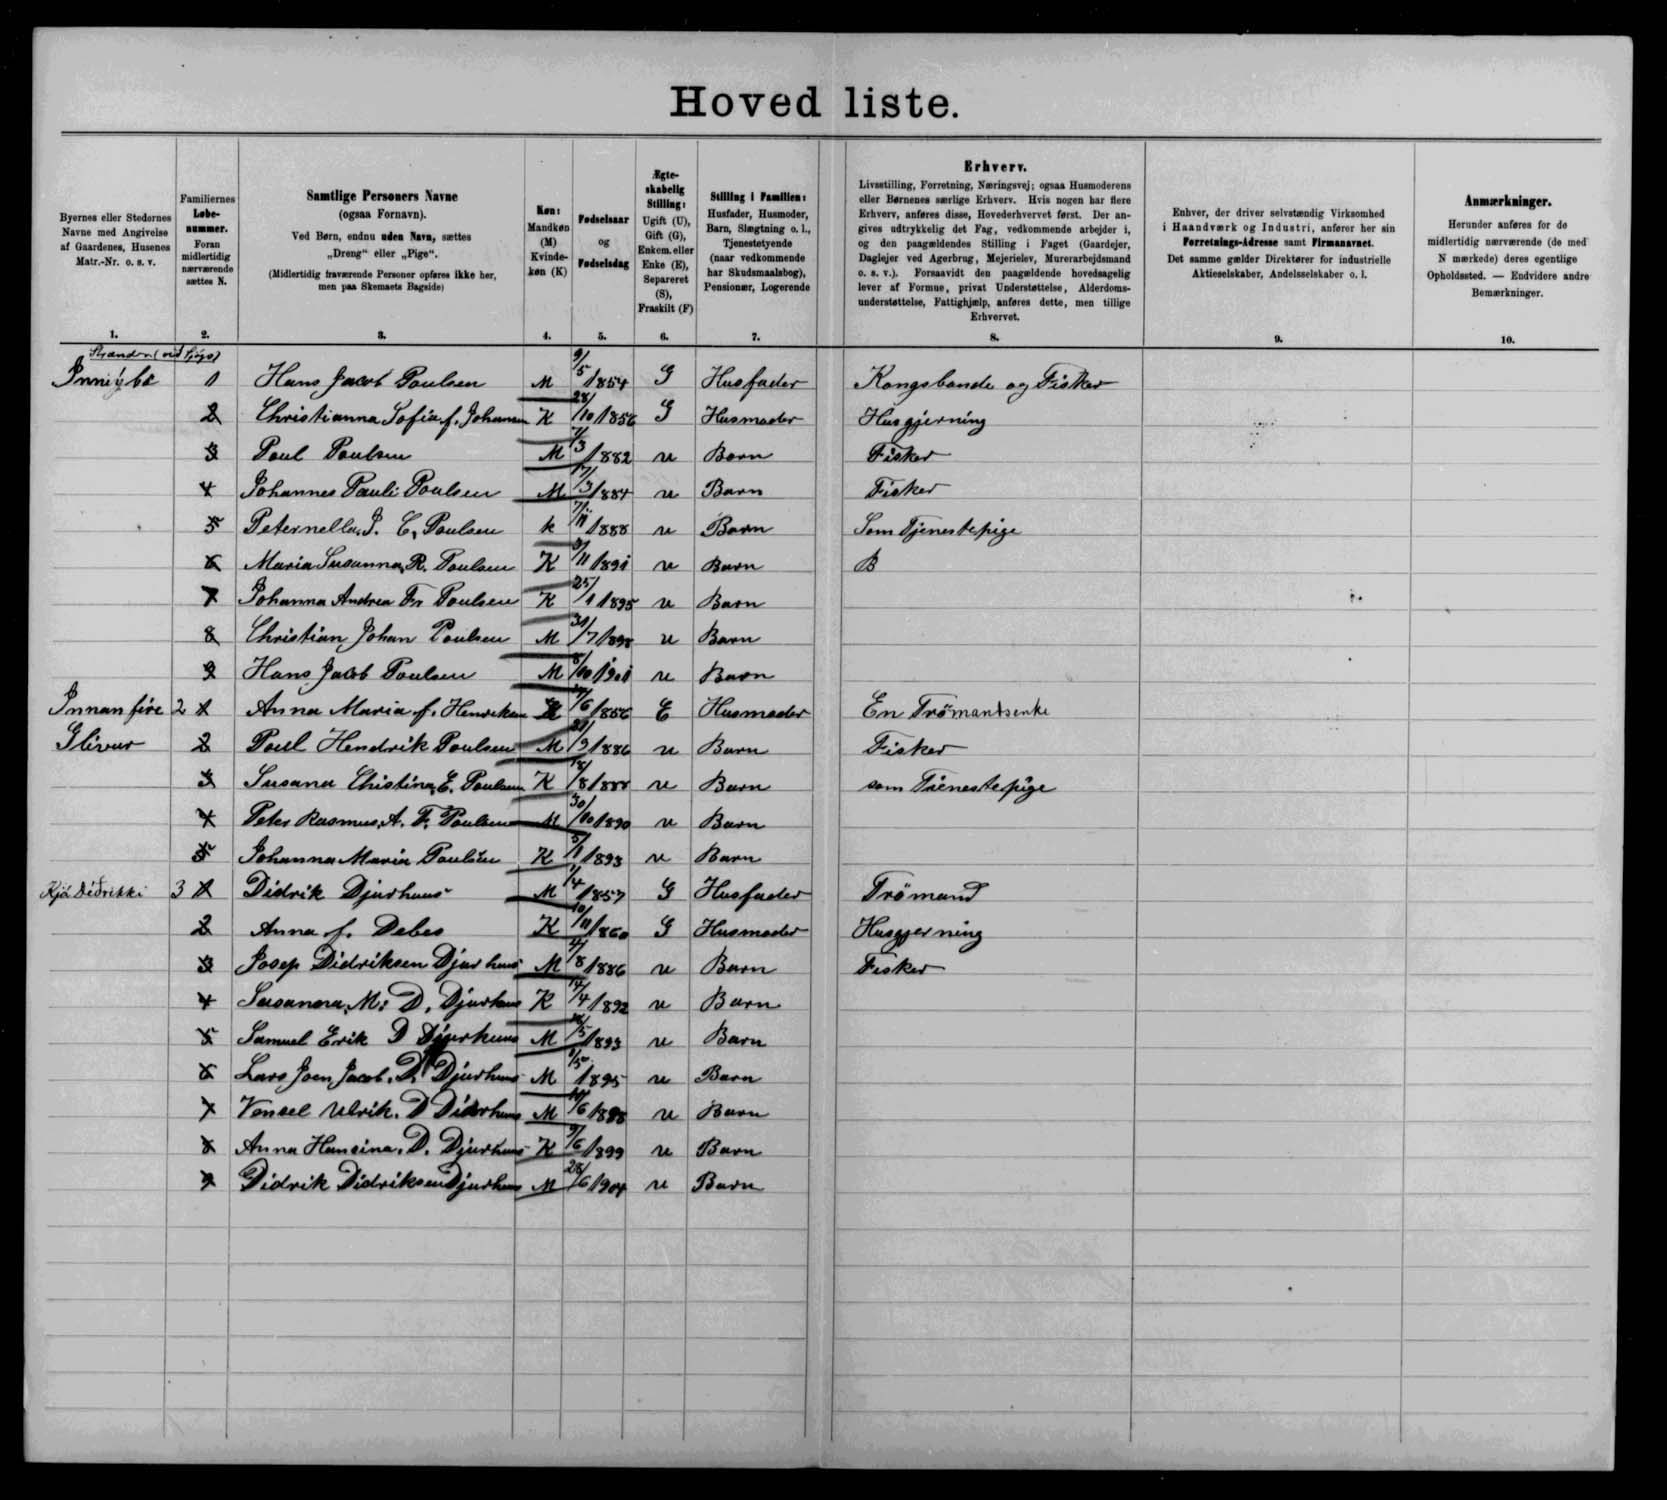 Hoved liste.
Byernes eller Stedernes Navne med Angivelse af Gaardenes, Husenes Matr.-Nr. o. s. v.
Familiernes Løbenummer. Foran midlertidig nærværende sættes N.
Samtlige Personers Navne (ogsaa Fornavn). Ved Børn, endnu uden Navn, sættes „Dreng“ eller „Pige“. (Midlertidig fraværende Personer opføres ikke her, men paa Skemaets Bagside)
Køn: Mandkøn (M) Kvindekøn (K)
Fødselsaar og Fødselsdag
Ægteskabelig Stilling: Ugift (U), Gift (G), Enkem. eller Enke (E), Separeret (S), Fraskilt (F)
Stilling i Familien: Husfader, Husmoder, Barn, Slægtning o. l., Tjenestetyende (naar vedkommende har Skudsmaalsbog), Pensionær, Logerende
Erhverv. Livsstilling, Forretning, Næringsvej; ogsaa Husmoderens eller Børnenes særlige Erhverv. Hvis nogen har flere Erhverv, anføres disse, Hovederhvervet først. Der angives udtrykkelig det Fag, vedkommende arbejder i, og den paagældendes Stilling i Faget (Gaardejer, Daglejer ved Agerbrug, Mejerielev, Murerarbejdsmand o. s. v.). Forsaavidt den paagældende hovedsagelig lever af Formue, privat Understøttelse, Alderdomsunderstøttelse, Fattighjælp, anføres dette, men tillige Erhvervet.
Enhver, der driver selvstændig Virksomhed i Haandværk og Industri, anfører her sin Forretnings-Adresse samt Firmanavnet. Det samme gælder Direktører for industrielle Aktieselskaber, Andelsselskaber o. l.
Anmærkninger. Herunder anføres for de midlertidig nærværende (de med N mærkede) deres egentlige Opholdssted. — Endvidere andre Bemærkninger.
1. 2. 3. 4. 5. 6. 7. 8. 9. 10.
1 Hans Jacob Poulsen M 9/5 1854 G Husfader Kongsbonde og Fisker
2 Christianna Sofia f. Johansen K 28/10 1856 G Husmoder Husgjerning
3 Poul Poulsen M 1882 u Barn Fisker
4 Johannes Pauli Poulsen M 17/3 1884 u Barn Fisker
5 Peternella J. C. Poulsen k 1888 u Barn Som Tjenestepige
6 Maria Susanna R. Poulsen K 1891 u Barn B
7 Johanna Andrea Fr Poulsen K 25/1 1895 u Barn
8 Christian Johan Poulsen M 1898 u Barn
9 Hans Jacob Poulsen M 8/10 1901 u Barn
Innanfire 2 1 Anna Maria f. Henriksen K 1856 E Husmoder En Trømandsenke
Glivur 2 Poul Hendrik Poulsen M 1886 u Barn Fisker
3 Susana Christina E. Poulsen K 18/8 1888 u Barn som Tienestepige
4 Peter Rasmus A. F. Poulsen M 30/10 1890 u Barn
5 Johanna Maria Poulsen K 1893 u Barn
Kjá Diðrikki 3 1 Didrik Djurhuus M 1857 G Husfader Trømand
2 Anna f. Debes K 10/11 1860 G Husmoder Husgjerning
3 Josep Didriksen Djurhuus M 4/8 1886 u Barn Fisker
4 Susanna M: D. Djurhuus K 14/4 1892 u Barn
5 Samuel Erik D Djurhuus M 1893 u Barn
6 Lars Joen Jacob D. Djurhuus M 1895 u Barn
7 Vensel Ulrik. D Djurhuus M 1898 u Barn
8 Anna Hansina. D. Djurhuus K 9/6 1899 u Barn
9 Didrik Didriksen Djurhuus M 28/6 1904 u Barn